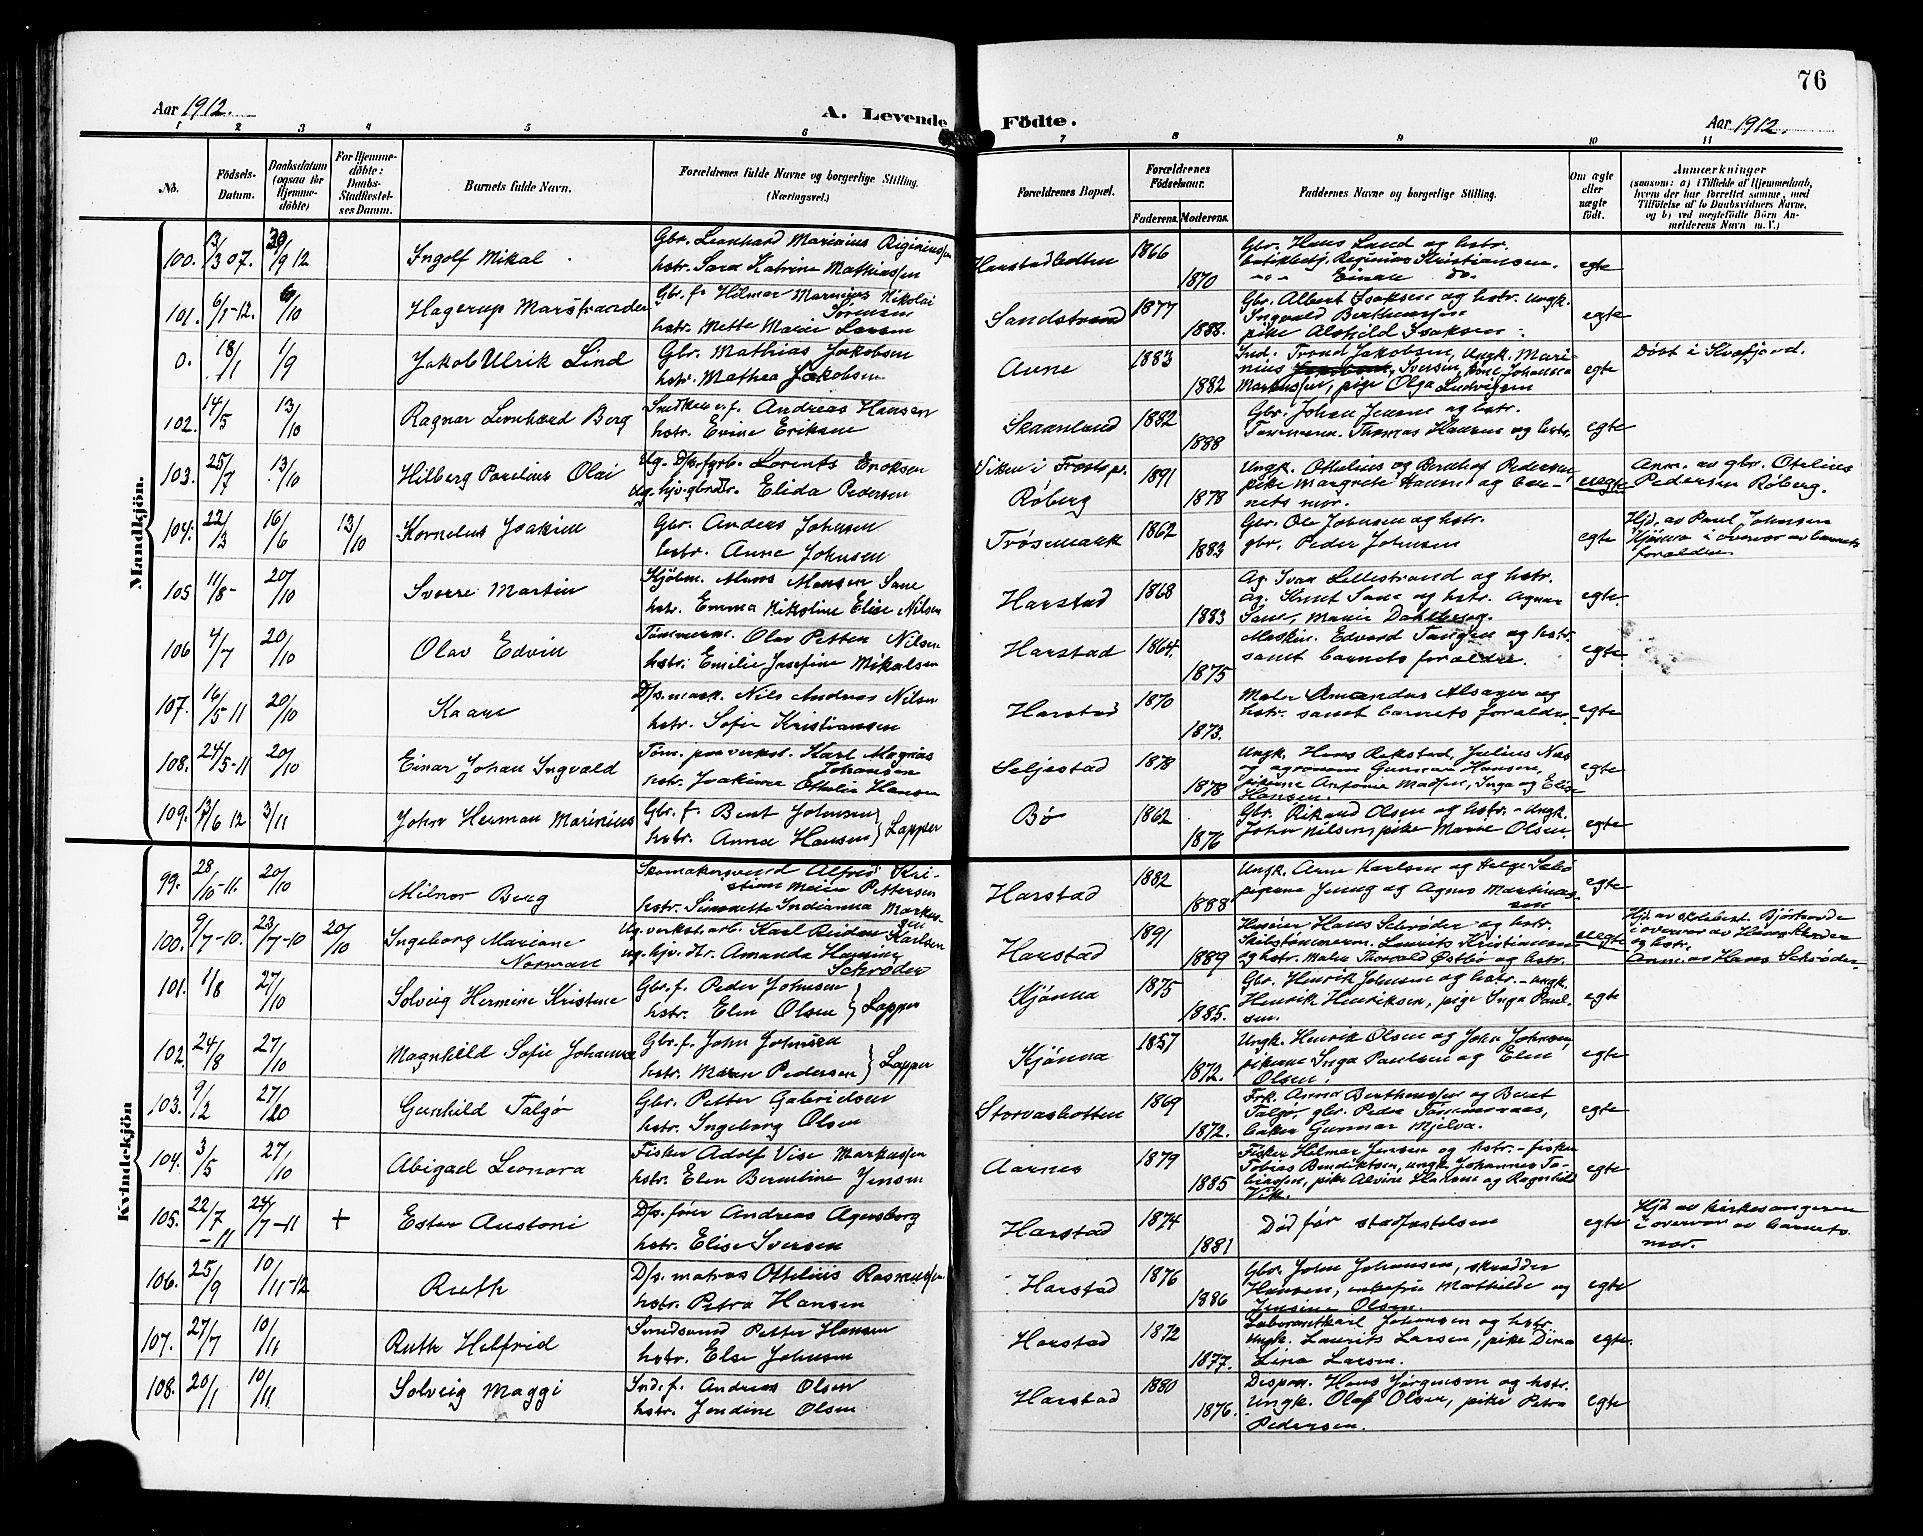 76
Aar 1912.
A. Levende Födte.
Aar 1912.
1 2 3 4 5 6 7 8 9 10 11
No.
Födsels-
Datum.
Daabsdatum
(ogsaa for
Hjemme-
döbte)
For Hjemme-
döbte:
Daabs-
Stadfæstel-
ses Datum.
Barnets fulde Navn.
Forældrenes fulde Navne og borgerlige Stilling.
(Næringsvei.)
Forældrenes Bopæl.
Forældrenes
Födselsaar.
Faderens. Moderens.
Faddernes Navne og borgerlige Stilling.
Om ægte
eller
uægte
født.
Anmærkninger
(saasom: a) i Tilfælde af Hjemmedaab,
hvem der har forrettet samme, med
Tilföielse af to Daabsvidners Navne,
og b) ved uægtefödte Börn An-
melderens Navn m. V.)
Mandkjön.
100. 13/3 07. 29/9 12 Ingolf Mikal
Gbr. Leonhard Marinius Riginiussen
hstr. Sara Katrine Mathiassen
Harstadbotten 1866 1870
Gbr. Hans Lund og hstr.
Reginius Kristiansen.
Einan do.
egte
101. 6/1-12. 6/10 Hagerup Marstrander
Gbr. f. Hilmar Marnius Nikolai
Sørensen
hstr. Mette Marie Larsen
Sandstrand 1877 1888.
Gbr. Albert Isaksen og hstr. ungk.
Ingvald Bertheussen
pike Alshild Isaksen.
egte
0. 18/1 1/9 Jakob Ulrik Lind
Gbr. Mathias Jakobsen
hstr. Mathea Jakobsen
Aune 1883 1882
Ind. Trond Jakobsen, Ungk. Mari-
nius Iversen, Johanna
Markussen, pige Olga Ludvigsen
egte
Døbt i Kvæfjord.
102. 14/5 13/10 Ragnar Leonhard Berg
Snedker o. f. Andreas Hansen
hstr. Evine Eriksen
Skaanland 1882 1888
Gbr. Johan Jensen og hstr.
Tømmerm. Thomas Hansen og hstr.
egte
103. 25/7 13/10 Hilberg Parelius Olai
Ug. D/s. fyrb. Lorents Enoksen
Ug. hjv. gbrdtr. Elida Pedersen
Vikken i Trosts pr.
Røberg 1891 1878
Ungk. Ottelius og Bernhof Pedersen,
pike Margrete Hansen og bar-
nets mor.
uegte
Anm. av gbr. Otelius
Pedersen Røberg.
104. 22/3 16/6 13/10 Kornelius Joakim
Gbr. Anders Johnsen
hstr. Anne Johnsen
Trøsemark 1862 1883
Gbr. Ole Johnsen og hstr.
gbr. Peder Johnsen
egte
Hjd. av Paul Johnsen
Kjønna i overvær av barnets
forældre
105 11/8- 20/10 Sverre Martin
Kjøbm. Mons Monsen Sane
hstr. Emma Nikoline Elise Nilsen
Harstad 1868 1883
Ag. Ivar Lillestrand og hstr.
Ag. Knut Sane og hstr. Agnes
Sane, Marie Dahlberg.
egte.
106 4/7 20/10 Olav Edvin
Tømmerm. Olav Petter Nilsen
hstr. Emilie Josefine Mikalsen
Harstad 1864. 1875
Maskin. Edvard Tangen og hstr.
samt barnets forældre.
egte
107. 16/5 11 20/10 Kaare
D/s. mask. Nils Andreas Nilsen
hstr. Sofie Kristiansen
Harstad 1870 1873.
Maler Amandus Alsager og
hstr. samt barnets forældre
egte
108. 24/5-11 20/10 Einar Johan Ingvald
Tøm. paa verkst. Karl Magnus
Johansen
hstr. Joakime Ottelie Hansen
Seljestad 1878 1878
Ungk. Hans Rekstad, Julius Nas
og agronom Gunnar Hansen,
pikerne Antonie Madsen, Inga og Elise
Hansen.
egte
109. 13/6 12 3/11 John Herman Marinius
Gbr. f. Bent Johnsen
hstr. Anna Hansen } Lapper
Bø 1862 1876
Gbr. Rikard Olsen og hstr. - ungk.
John Nilsen, pike Marie Olsen.
egte
Kvindekjön
99. 28/10-11. 20/10 Milnor Berg
Skomakersvend Alfred Kri-
stian Meier Pettersen
hstr. Simonette Indianna Markus-
sen
Harstad 1882 1888
Ungk. Arne Karlsen og Helge Sæbø
pigerne Jenny og Agnes Martinus-
sen
egte
100. 9/7-10. 23/7-10 20/10 Ingeborg Mariane
Norman
Ug. verkst. arb. Karl Reidar Karlsen
ug. hjv. dtr. Amanda Hermine
Schrøder
Harstad 1891 1889
Huseier Hans Schrøder og hstr.
Skibstømmerm. Laurits Kristiansen
og hstr. Maler Thorvald Østbø og hstr.
uegte
Hjd. av skolebest. Bjørkvode
i overvær av Hans Schrøder
og hstr.
Anm. av Hans Schrøder.
101. 1/8 27/10 Solveig Hermine Kristine
Gbr. f. Peder Johnsen
hstr. Elen Olsen } Lapper
Kjønna 1875 1885.
Gbr. Henrik Johnsen og hstr. - ungk.
Henrik Henriksen, pige Inga Paul-
sen.
egte
102. 24/8 27/10 Magnhild Sofie Johanna
Gbr. f. John Johnsen
hstr. Maren Pedersen } Lapper
Kjønna 1857 1872.
Ungk. Henrik Olsen og John Johnsen,
pikerne Inga Paulsen og Elen
Olsen.
egte
103. 9/2 27/20 Gunhild Talgø
Gbr. Petter Gabrielsen
hstr. Ingeborg Olsen
Storvasbotten 1869 1872.
Frk. Anna Bertheussen og Beret
Talgø, gbr. Peder Tømmeraas,
baker Gunnar Mjelva.
egte
104. 3/5 27/10 Abigael Leonora
Fisker Adolf Vise Markussen
hstr. Elen Berntine Jensen
Aarnes 1879 1885
Fisker Hilmar Jensen og hstr. - fisker
Tobias Bendiktsen, ungk Johannes To-
biassen, pike Alvine Hansen og Ragnhild
Vik.
egte
105. 22/7-11 24/7-11 + Ester Austoni
D/s. fører Andreas Agersborg
hstr. Elise Iversen
Harstad 1874 1881
Død før stadfæstelsen
egte
Hjd. av kirkesangeren
i overvær av barnets
mor.
106. 25/9 10/11-12 Ruth
D/s. matros Ottelius Rasmussen
hstr. Petra Hansen
Harstad 1876 1886
Gbr. John Johansen, skrædder
Hansen, enkefru Mathilde og
Jensine Olsen.
egte
107. 27/7 10/11 Ruth Helfrid
Smedsvend Petter Hansen
hstr. Else Johnsen
Harstad 1872 1877.
Karl Johansen og hstr.
ungk. Laurits Larsen, pike Dina
Lina Larsen.
egte.
108. 20/1 10/11 Solveig Maggi
Ind. f. Andreas Olsen
hstr. Jendine Olsen
Harstad 1880 1876.
Dispon. Hans Jørgensen og hstr.
ungk. Olaf Olsen, pike Petra
Pedersen.
egte